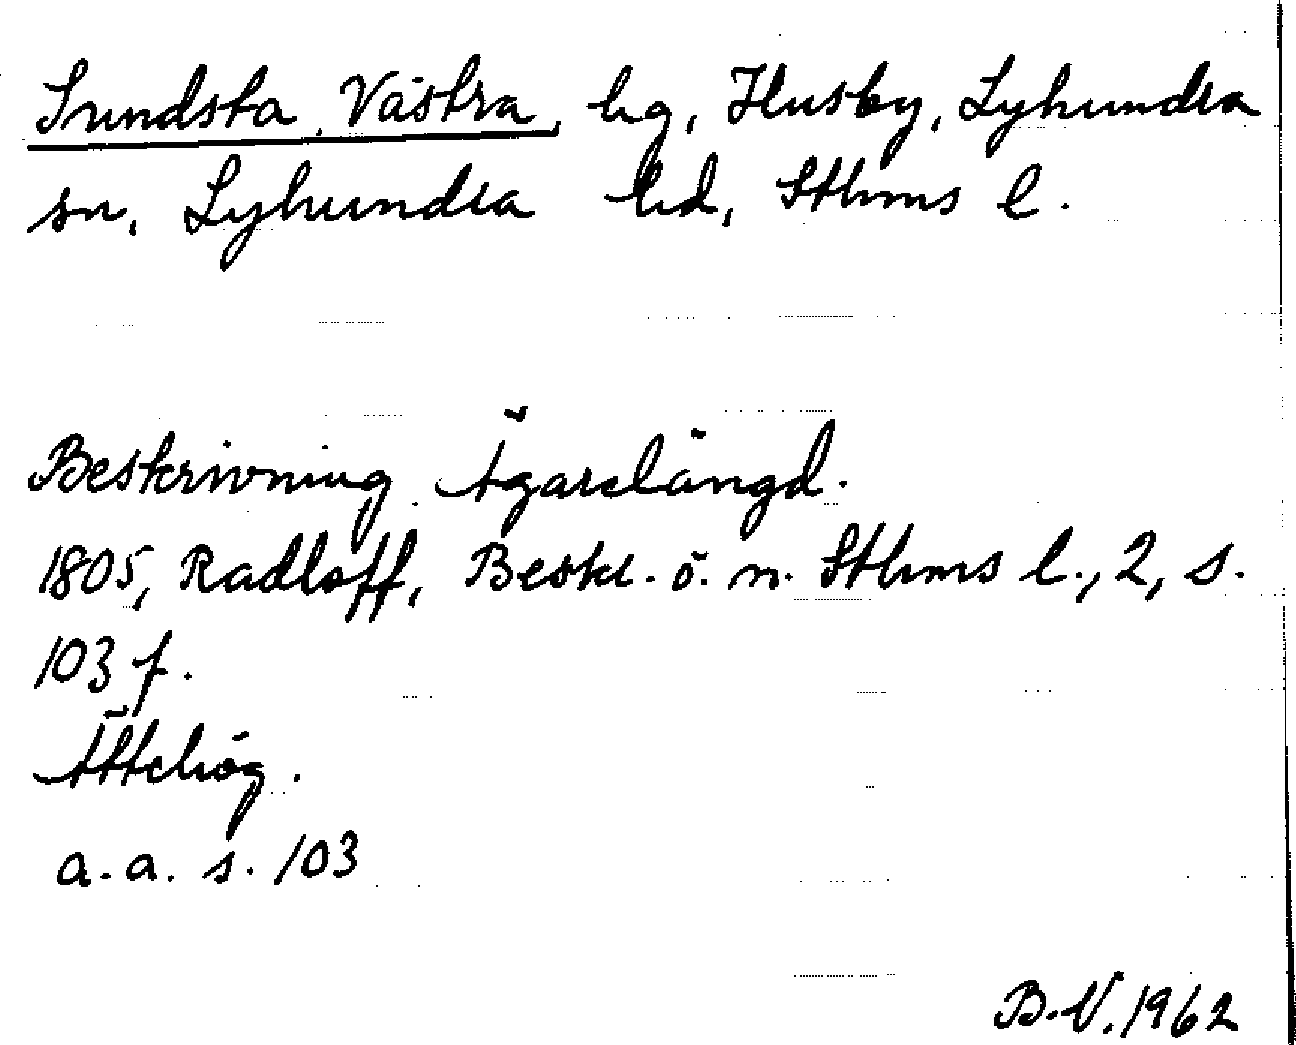 Sundsta, Västra, hg, Husby, Lyhundra
sn, Lyhundra hd, Sthms l.
Beskrivning. Ägarelängd.
1805, Radloff, Beskr. ö. n. Sthms l., 2, s.
103 f.
Ättehög.
a. a. s. 103
B.V. 1962